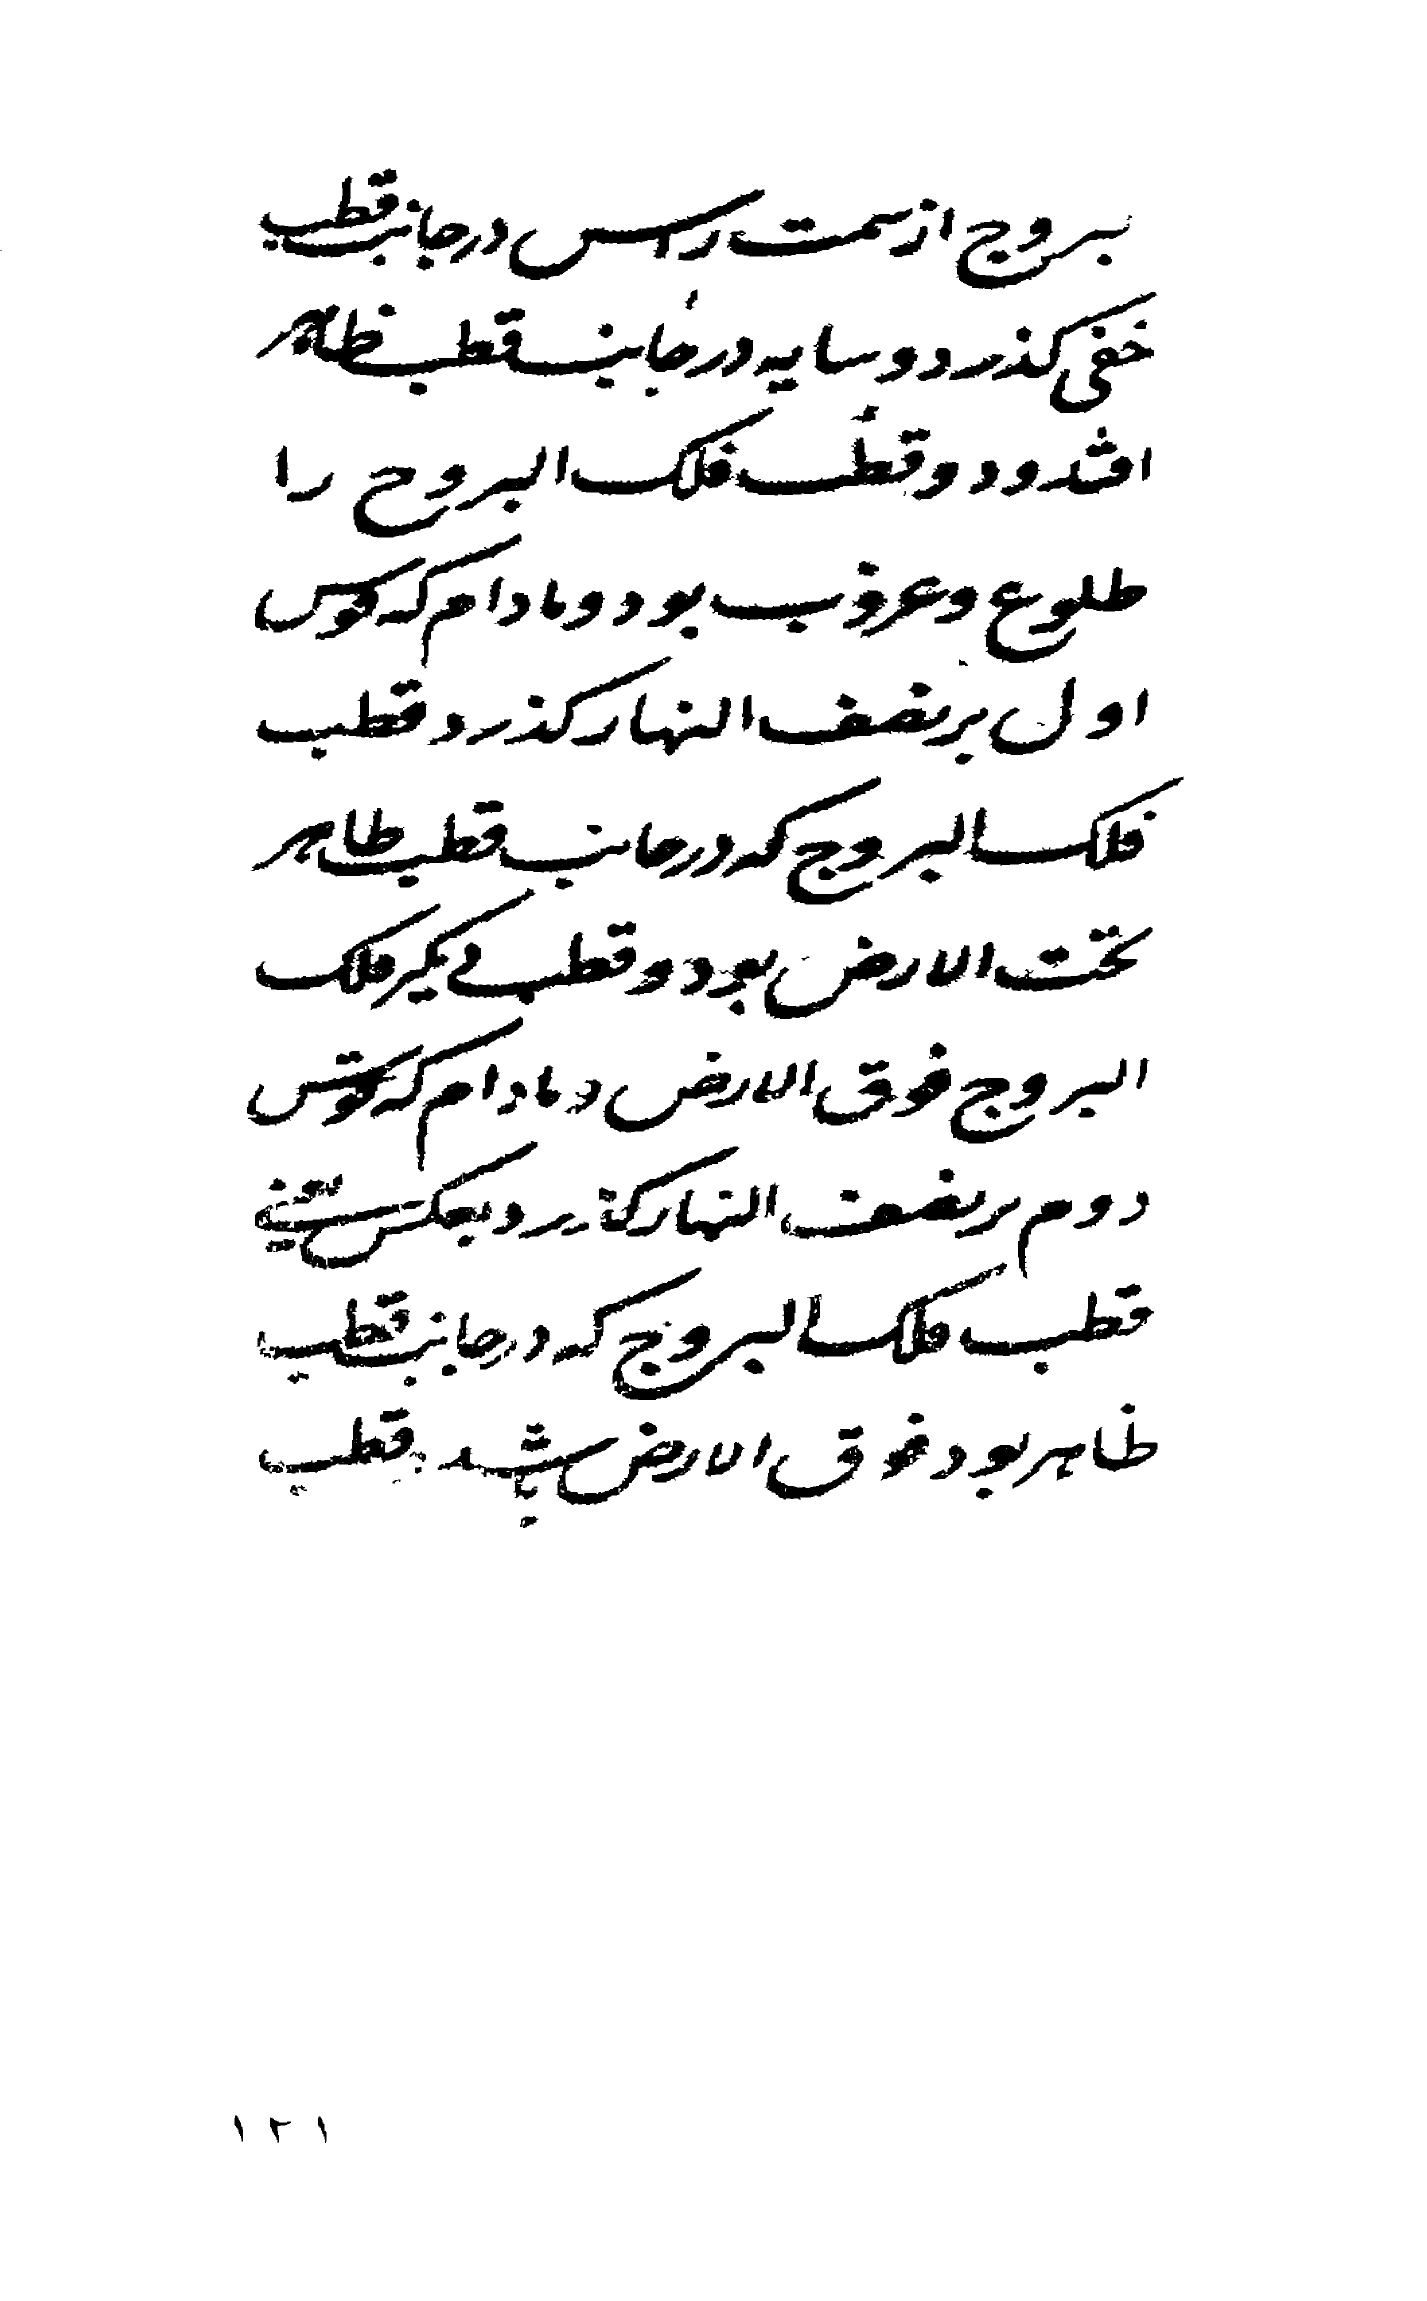 بروج از سمت راس در جانب قطب
خفی کذرد و سایه در جانب قطب ظاهر
افتد و دو قطب فلک البروج را
طلوع و عروب بود و مادام که قوس
اول بر نصف النهار کذرد قطب
فلک البروج که در جانب قطب ظاهر
تحت الارض بود و قطب دیگر فلک
البروج فوق الارض و مادام که قوس
دوم بر نصف النهار کذرد و بعکس یعنی
قطب فلک البروج که در جانب قطب
ظاهر بود فوق الارض باشد و قطب
۱۲۱